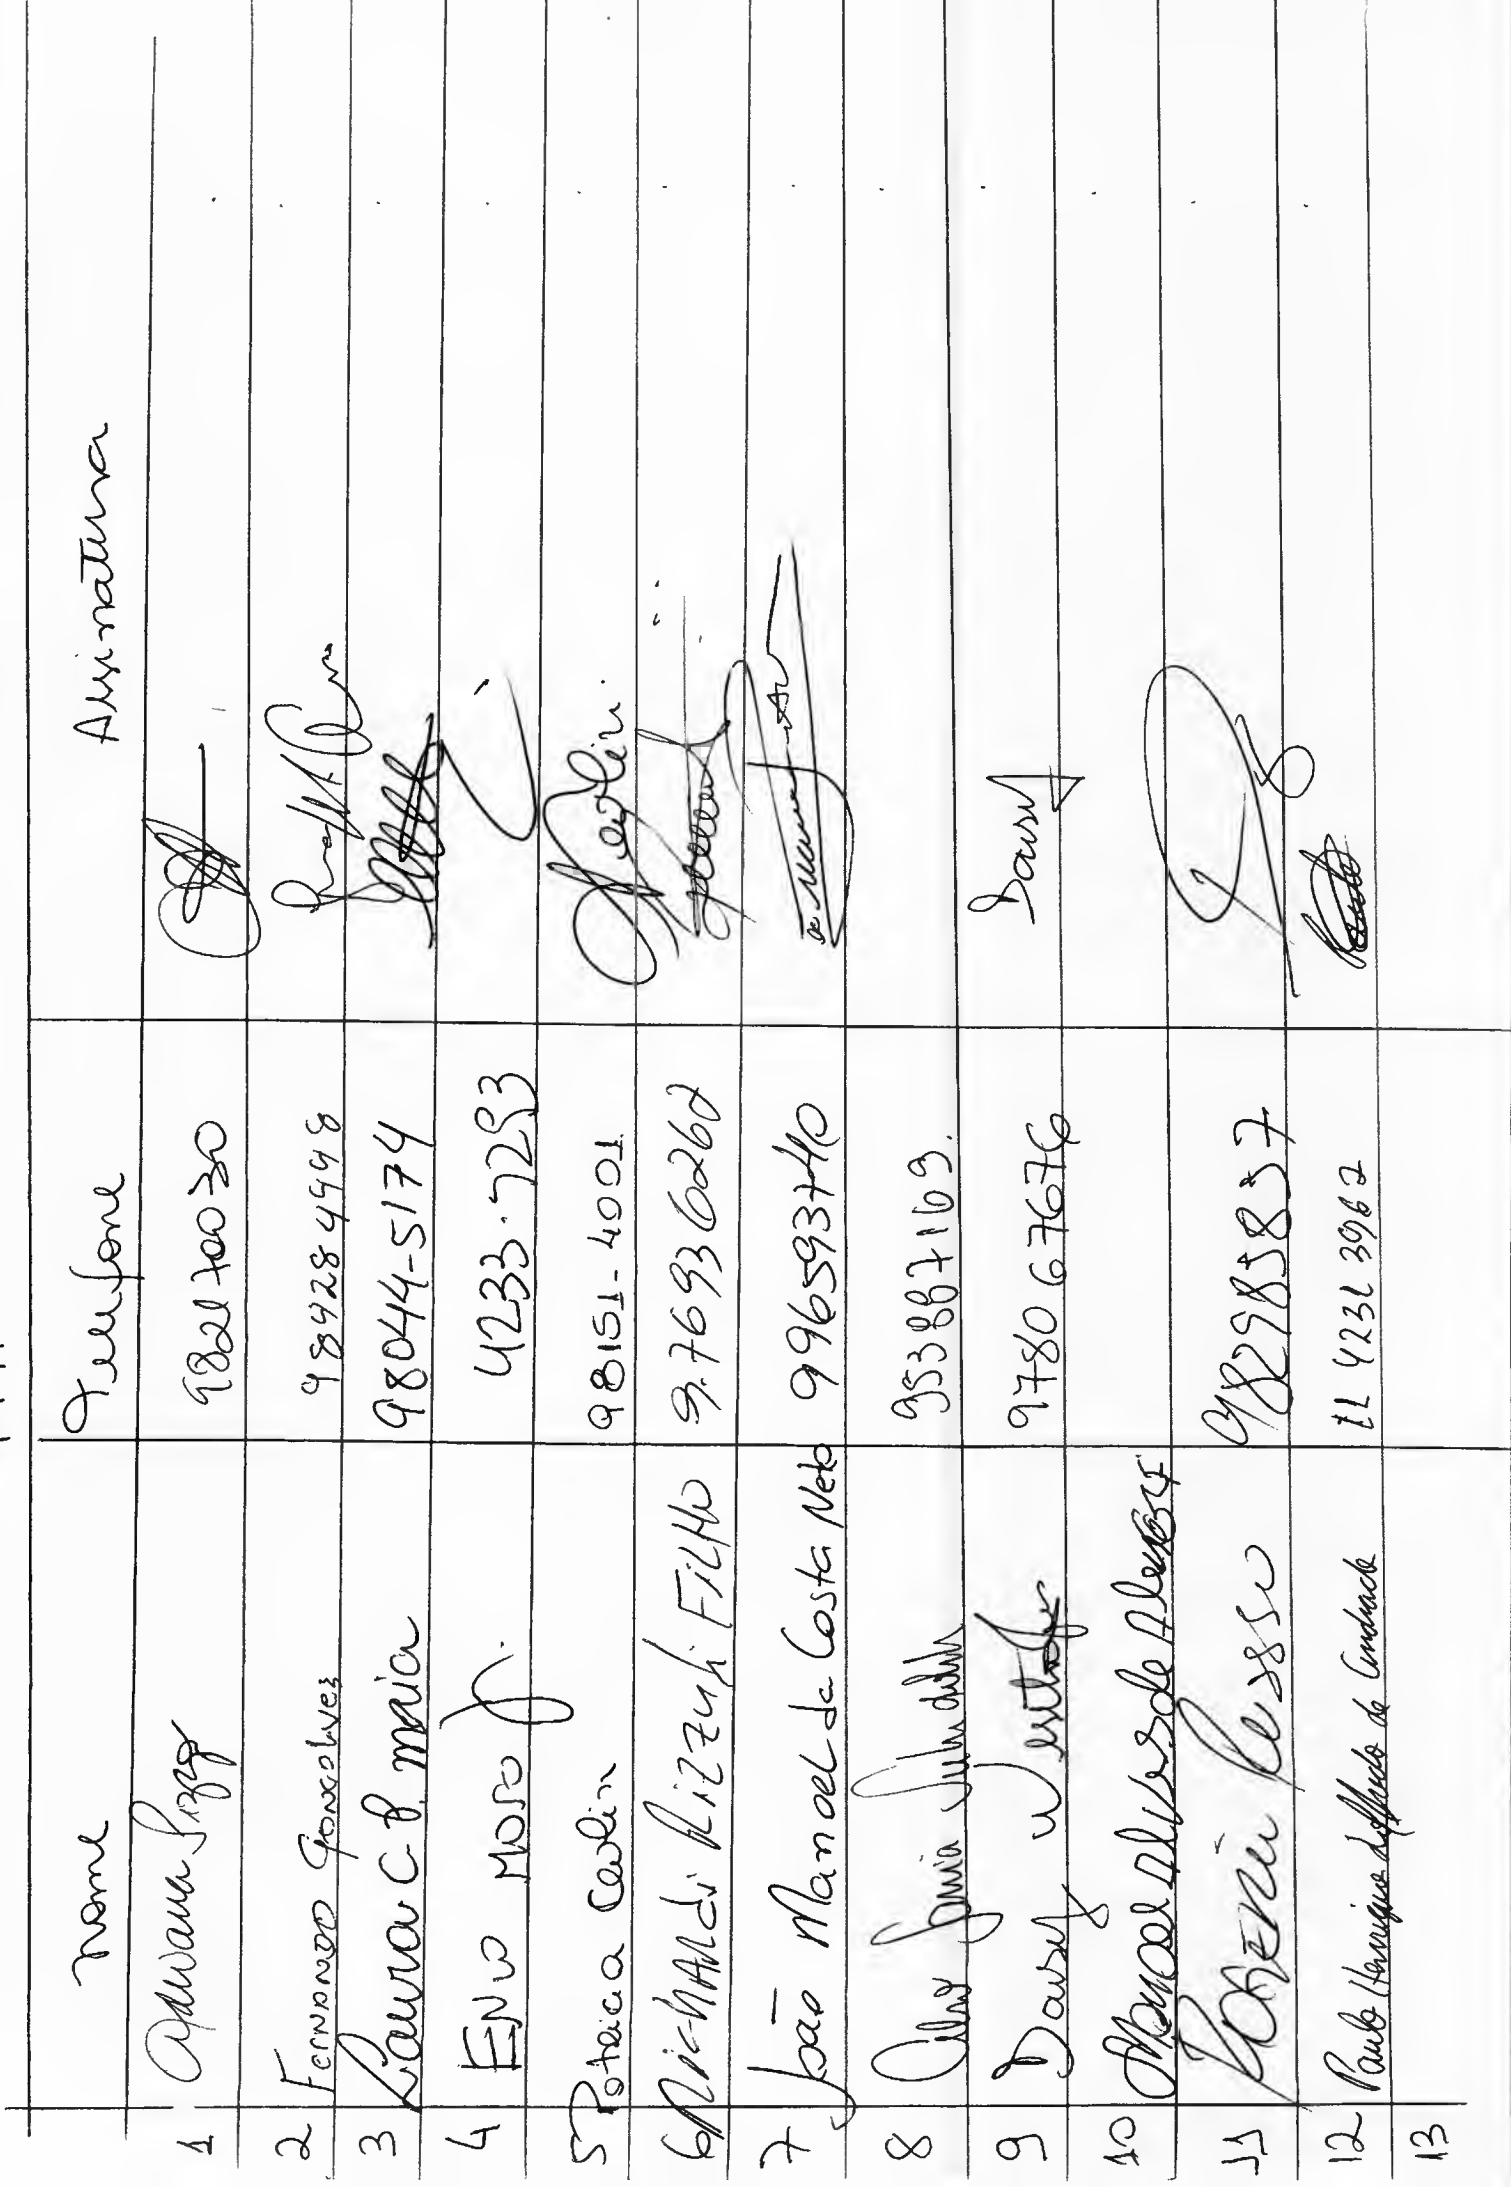 Nome Telefone Assinatura
1 Pizzo 982170030
2 Fernando Gonçalves 984284998
3 Laura C. P. Maia 98044-5174
4 Enio Moro 4233.7293
5 Patricia Carlin 98151-4001
6 Richardi Rizzuli Filho 9.76936262
7 João Manoel da Costa Neto 996593740
8 953887169.
9 Daisy 978067676 Daisy
10 Manoel Alves de
11 982985837
12 Paulo Henrique de Andrade 11 4231 3962
13